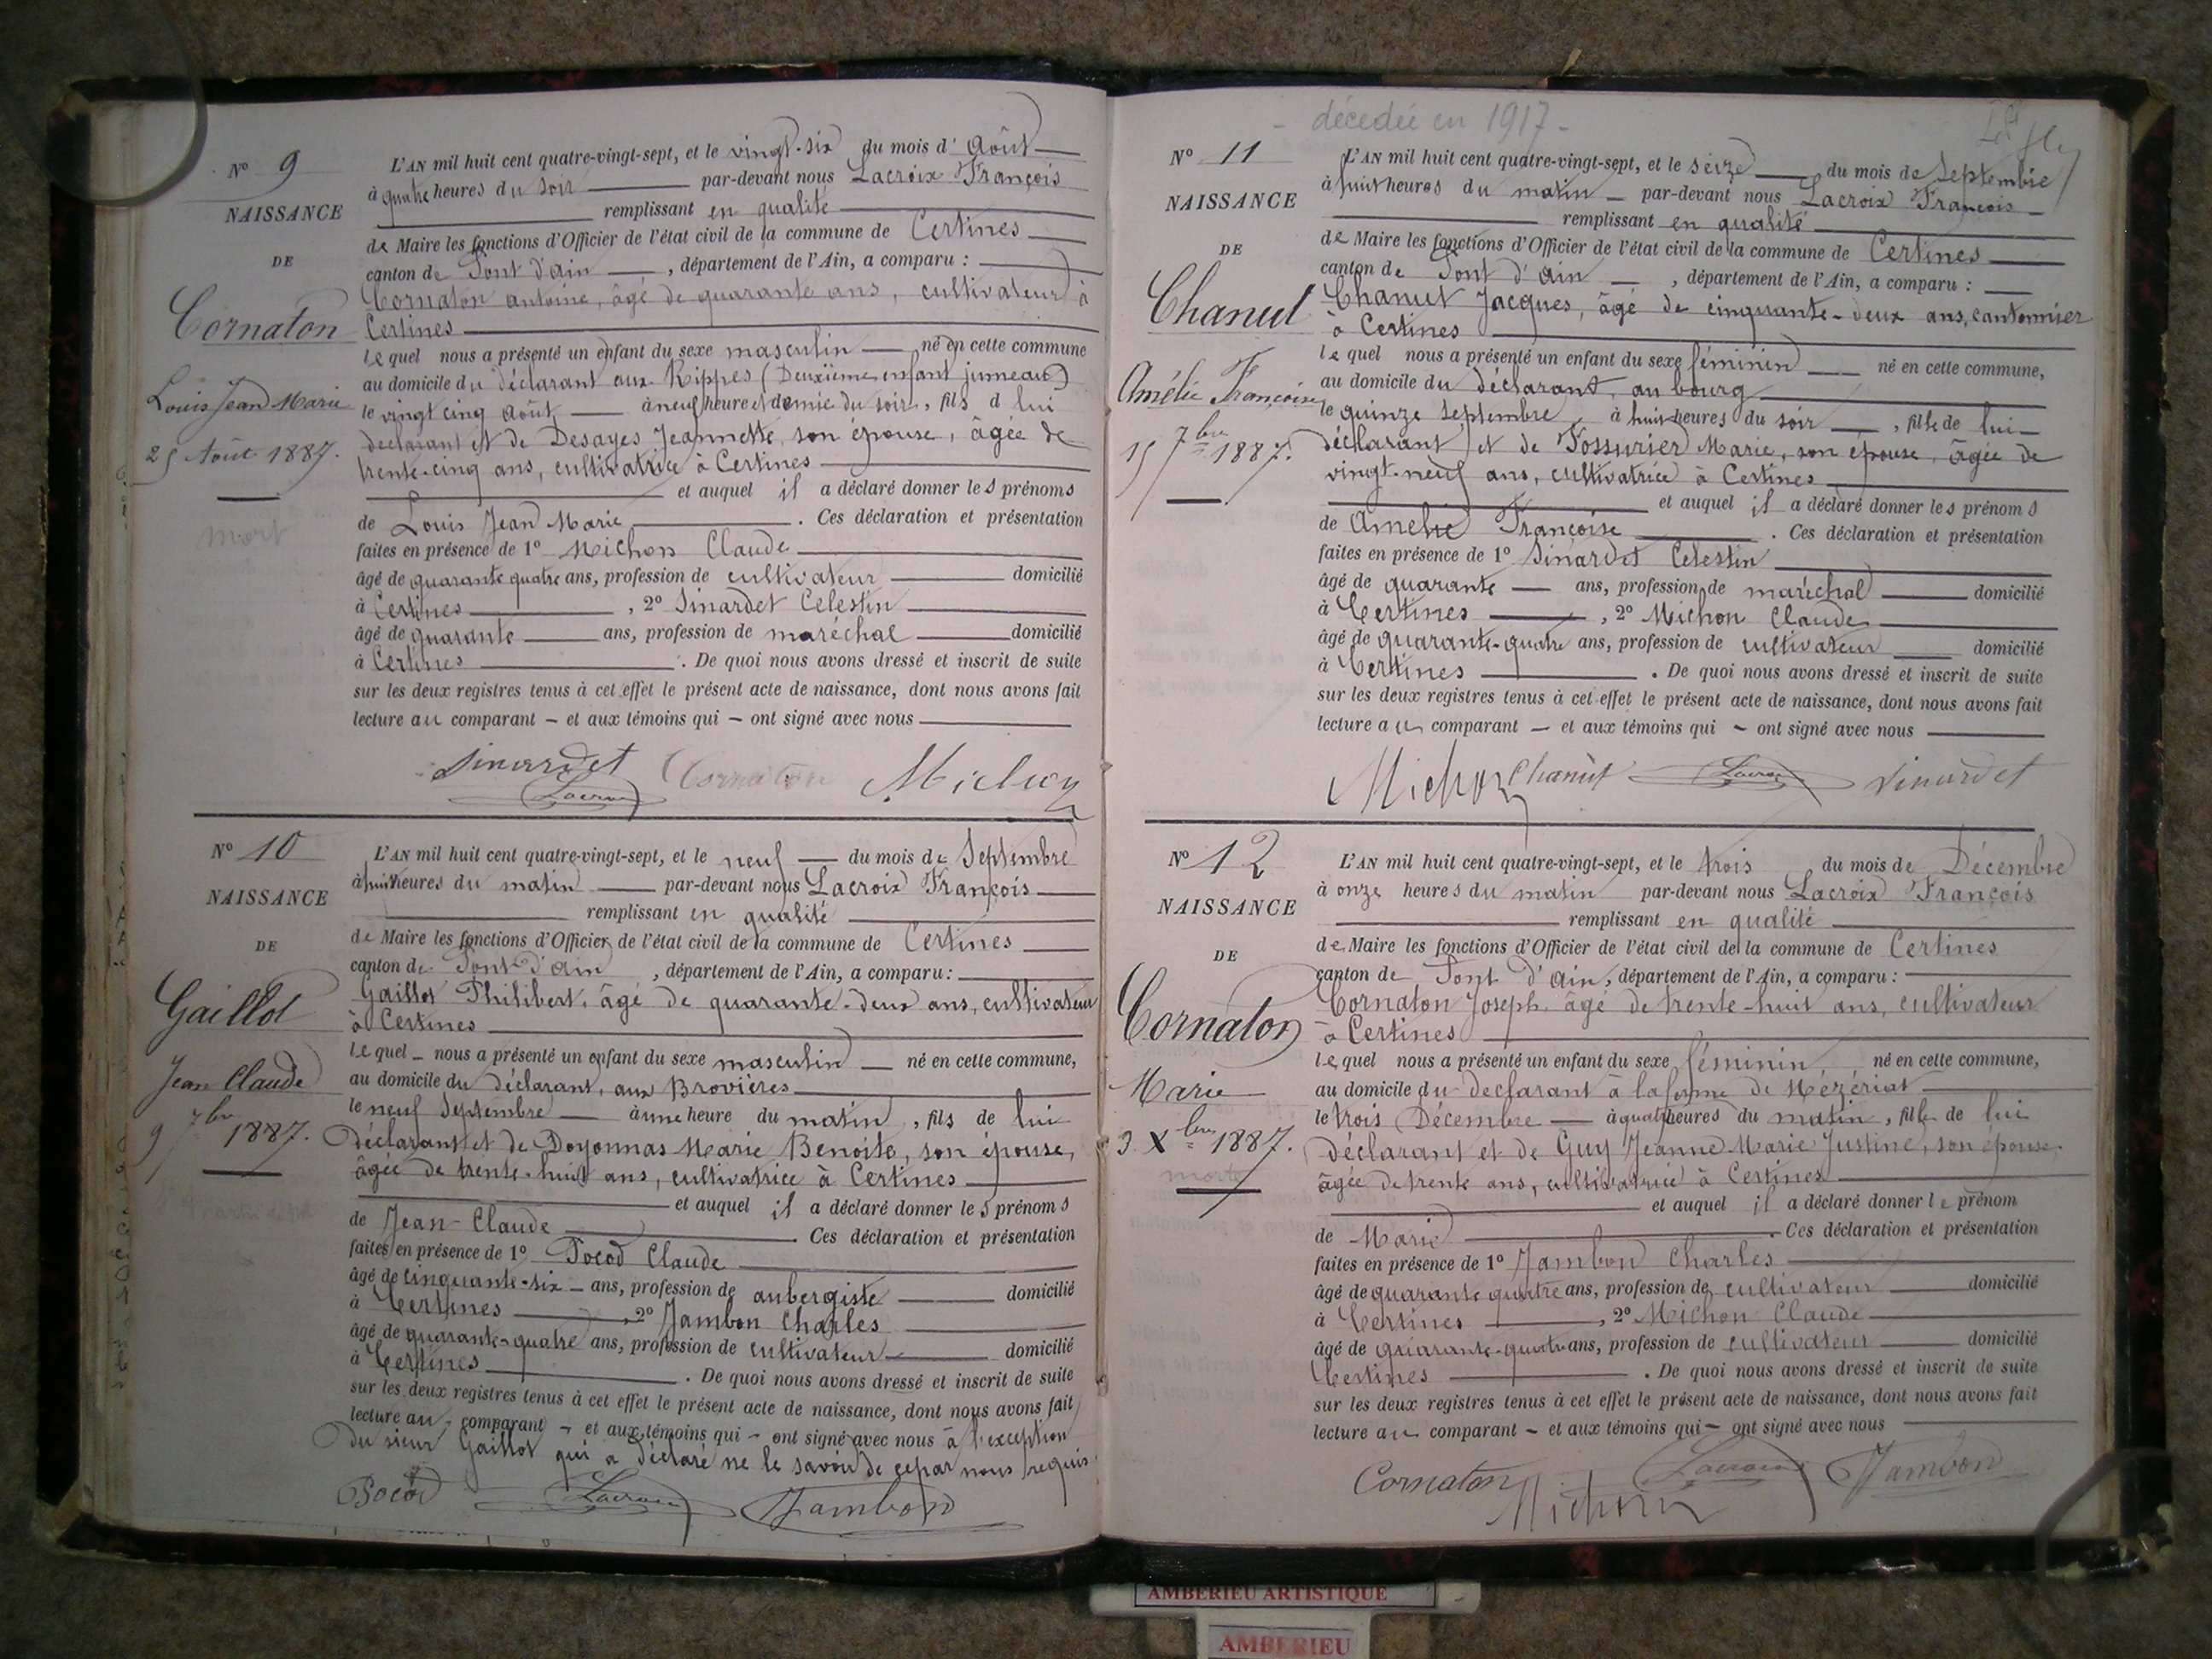 N° 9
NAISSANCE
DE
Cornaton
Louis Jean Marie
25 Août 1887.
mort
L'AN mil huit cent quatre-vingt-sept, et le vingt-six du mois d'Août
à quatre heures du soir par-devant nous Lacroix François
remplissant en qualité
de Maire les fonctions d'Officier de l'état civil de la commune de Certines
canton de Pont d'ain, département de l'Ain, a comparu :
Cornaton antoine, âgé de quarante ans, cultivateur à
Certines
lequel nous a présenté un enfant du sexe masculin né en cette commune
au domicile du déclarant aux Rippes (Deuxième enfant jumeau)
le vingt cinq Août à neuf heure et demie du soir, fils d lui
déclarant et de Desayes Jeannette, son épouse, âgée de
trente-cinq ans, cultivatrice à Certines
et auquel il a déclaré donner les prénoms
de Louis Jean Marie. Ces déclaration et présentation
faites en présence de 1° Michon Claude
âgé de quarante quatre ans, profession de cultivateur domicilié
à Certines, 2° Sinardet Celestin
âgé de quarante ans, profession de maréchal domicilié
à Certines. De quoi nous avons dressé et inscrit de suite
sur les deux registres tenus à cet effet le présent acte de naissance, dont nous avons fait
lecture au comparant - et aux témoins qui - ont signé avec nous
Sinardet Cornaton Michon
Lacroix
N° 10
NAISSANCE
DE
Gaillot
Jean Claude
9 7bre 1887.
L'AN mil huit cent quatre-vingt-sept, et le neuf du mois de Septembre
à huit heures du matin par-devant nous Lacroix François
remplissant en qualité
de Maire les fonctions d'Officier de l'état civil de la commune de Certines
canton de Pont-d'ain, département de l'Ain, a comparu :
Gaillot Philibert, âgé de quarante-deux ans, cultivateur
à Certines
lequel nous a présenté un enfant du sexe masculin né en cette commune,
au domicile du déclarant, aux Brovières
le neuf Septembre à une heure du matin, fils de lui
déclarant et de Doyonnas Marie Benoite, son épouse,
âgée de trente-huit ans, cultivatrice à Certines
et auquel il a déclaré donner les prénoms
de Jean-Claude. Ces déclaration et présentation
faites en présence de 1° Pocod Claude
âgé de cinquante-six ans, profession de aubergiste domicilié
à Certines, 2° Jambon Charles
âgé de quarante-quatre ans, profession de cultivateur domicilié
à Certines. De quoi nous avons dressé et inscrit de suite
sur les deux registres tenus à cet effet le présent acte de naissance, dont nous avons fait
lecture au comparant - et aux témoins qui - ont signé avec nous à l'exception
du sieur Gaillot qui a déclaré ne le savoir de ce par nous requis.
Pocod Lacroix Jambon
décedée en 1917
N° 11
NAISSANCE
DE
Chanut
Amélie Françoise
15 7bre 1887.
L'AN mil huit cent quatre-vingt-sept, et le seize du mois de Septembre
à huit heures du matin par-devant nous Lacroix François
remplissant en qualité
de Maire les fonctions d'Officier de l'état civil de la commune de Certines
canton de Pont d'ain, département de l'Ain, a comparu :
Chanut Jacques, âgé de cinquante-deux ans, cantonnier
à Certines
lequel nous a présenté un enfant du sexe féminin né en cette commune,
au domicile du déclarant, au bourg
le quinze Septembre à huit heures du soir, fille de lui
déclarant et de Fossurier Marie, son épouse, âgée de
vingt-neuf ans, cultivatrice à Certines
et auquel il a déclaré donner les prénoms
de Amelie Françoise. Ces déclaration et présentation
faites en présence de 1° Sinardet Celestin
âgé de quarante ans, profession de maréchal domicilié
à Certines, 2° Michon Claude
âgé de quarante-quatre ans, profession de cultivateur domicilié
à Certines. De quoi nous avons dressé et inscrit de suite
sur les deux registres tenus à cet effet le présent acte de naissance, dont nous avons fait
lecture au comparant - et aux témoins qui - ont signé avec nous
Michon Chanut Lacroix Sinardet
N° 12
NAISSANCE
DE
Cornaton
Marie
3 Xbre 1887.
morte
L'AN mil huit cent quatre-vingt-sept, et le trois du mois de Décembre
à onze heures du matin par-devant nous Lacroix François
remplissant en qualité
de Maire les fonctions d'Officier de l'état civil de la commune de Certines
canton de Pont d'ain, département de l'Ain, a comparu :
Cornaton Joseph, âgé de trente-huit ans, cultivateur
à Certines
lequel nous a présenté un enfant du sexe féminin né en cette commune,
au domicile du declarant à la ferme de Mézériat
le trois Décembre à quatre heures du matin, fille de lui
déclarant et de Guy Jeanne Marie Justine, son épouse,
âgée de trente ans, cultivatrice à Certines
et auquel il a déclaré donner le prénom
de Marie. Ces déclaration et présentation
faites en présence de 1° Jambon Charles
âgé de quarante quatre ans, profession de cultivateur domicilié
à Certines, 2° Michon Claude
âgé de quarante-quatre ans, profession de cultivateur domicilié
Certines. De quoi nous avons dressé et inscrit de suite
sur les deux registres tenus à cet effet le présent acte de naissance, dont nous avons fait
lecture au comparant - et aux témoins qui - ont signé avec nous
Cornaton Michon Lacroix Jambon
AMBERIEU ARTISTIQUE
AMBERIEU